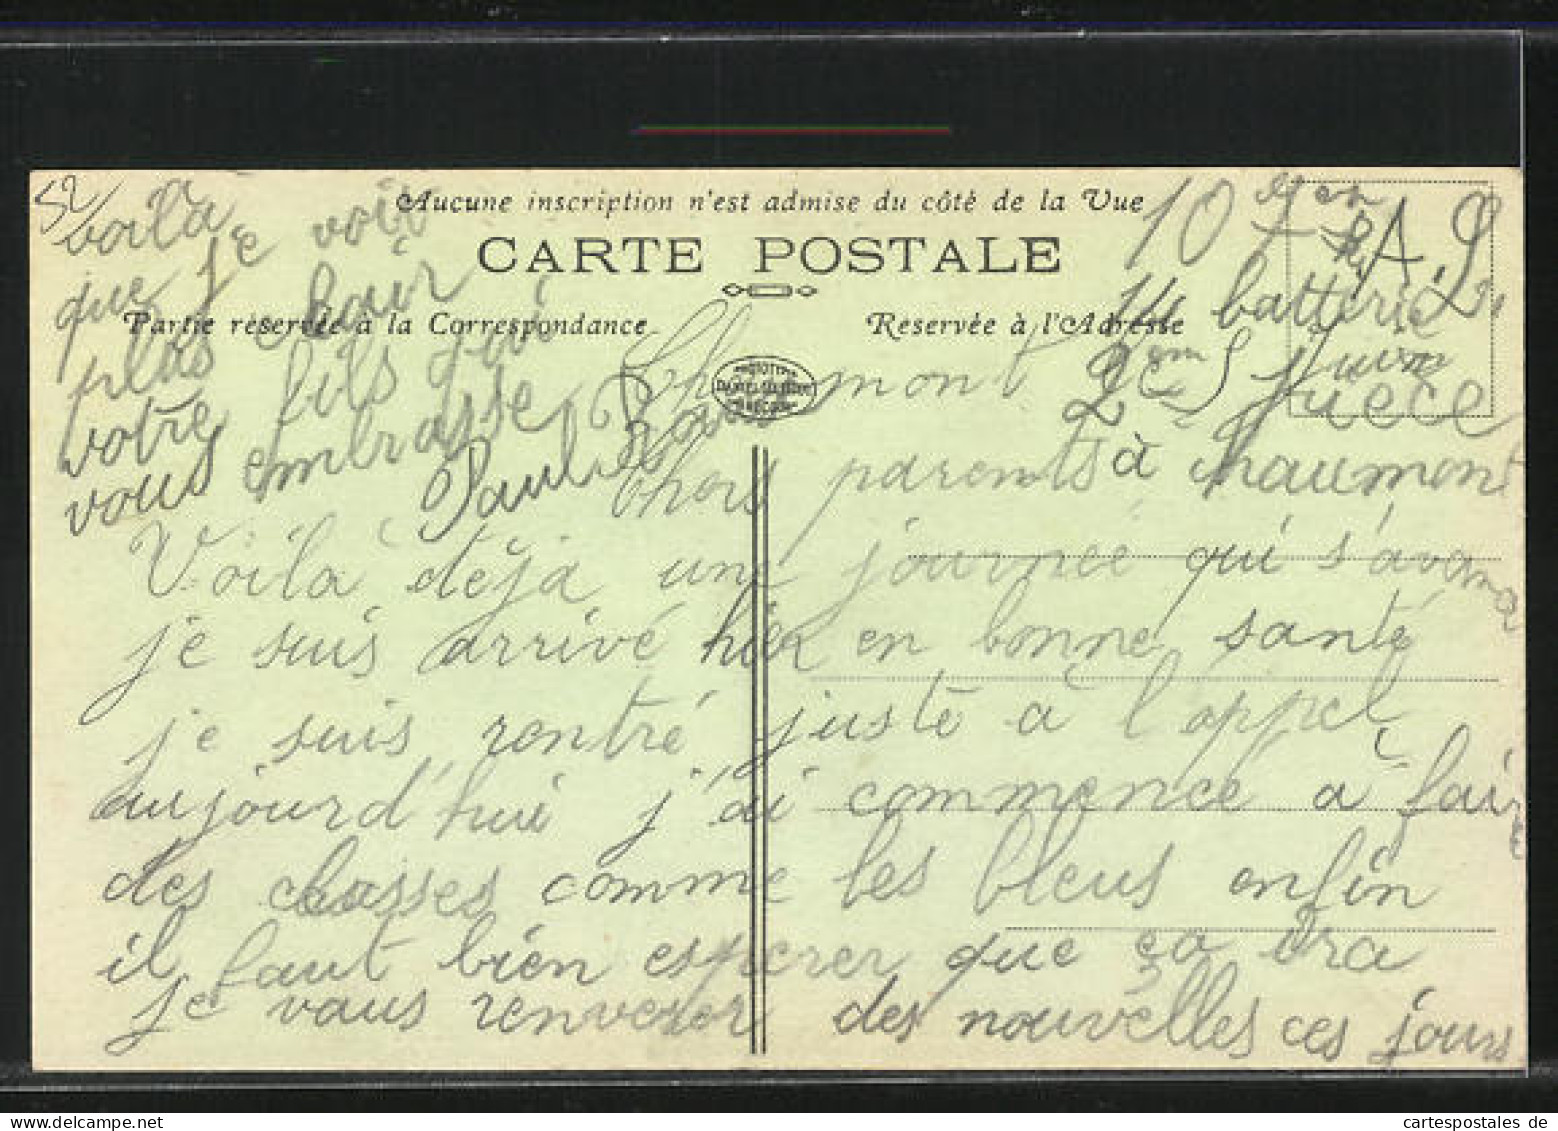 52
Aucune inscription n'est admise du côté de la Vue
CARTE POSTALE
Partie réservée à la Correspondance
Reservée à l'Adresse
10
A. L.
14 batterie
2em pièce
à chaumont
mont
chers parents
Voila déja une journeé qui s'avance
je suis arrivé hier en bonne santé
je suis rentré juste à l'appel
aujourd'hui j'ai commencé à faire
des classes comme les bleus enfin
il faut bien esperer que ça ira
je vous renverer des nouvelles ces jours
voila
que je vois
plus clair
votre fils qui
vous embrasse
Paul
cartespostales de